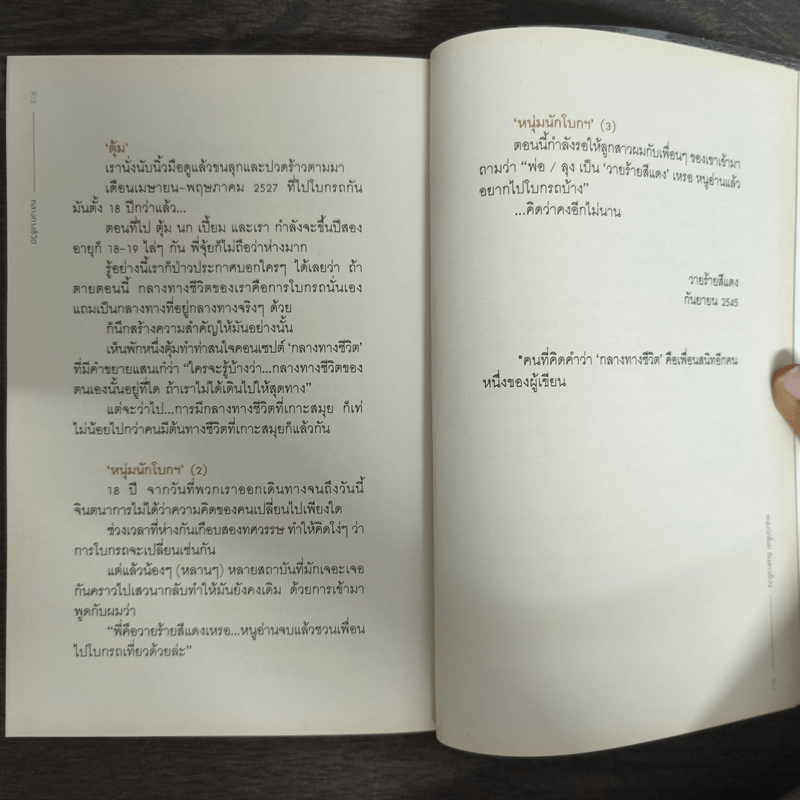 กลางทางชีวิต
'ตุ้ม'
เรานั่งนับนิ้วมือดูแล้วขนลุกและปวดร้าวตามมา
เดือนเมษายน-พฤษภาคม 2527 ที่ไปโบกรถกัน
มันตั้ง 18 ปีกว่าแล้ว...
ตอนที่ไป ตุ้ม นก เปี้ยม และเรา กำลังจะขึ้นปีสอง
อายุก็ 18-19 ไล่ๆ กัน พี่จุ้ยก็ไม่ถือว่าห่างมาก
รู้อย่างนี้เราก็ป่าวประกาศบอกใครๆ ได้เลยว่า ถ้า
ตายตอนนี้ กลางทางชีวิตของเราคือการโบกรถนั่นเอง
แถมเป็นกลางทางที่อยู่กลางทางจริงๆ ด้วย
ก็นึกสร้างความสำคัญให้มันอย่างนั้น
เห็นพักหนึ่งตุ้มทำท่าสนใจคอนเซปต์ 'กลางทางชีวิต'
ที่มีคำขยายแสนเก๋ว่า "ใครจะรู้บ้างว่า...กลางทางชีวิตของ
ตนเองนั้นอยู่ที่ใด ถ้าเราไม่ได้เดินไปให้สุดทาง"
แต่จะว่าไป...การมีกลางทางชีวิตที่เกาะสมุย ก็เท่
ไม่น้อยไปกว่าคนมีต้นทางชีวิตที่เกาะสมุยก็แล้วกัน
'หนุ่มนักโบกฯ' (2)
18 ปี จากวันที่พวกเราออกเดินทางจนถึงวันนี้
จินตนาการไม่ได้ว่าความคิดของคนเปลี่ยนไปเพียงใด
ช่วงเวลาที่ห่างกันเกือบสองทศวรรษ ทำให้คิดโง่ๆ ว่า
การโบกรถจะเปลี่ยนเช่นกัน
แต่แล้วน้องๆ (หลานๆ) หลายสถาบันที่มักเจอะเจอ
กันคราวไปเสวนากลับทำให้มันยังคงเดิม ด้วยการเข้ามา
พูดกับผมว่า
"พี่คือวายร้ายสีแดงเหรอ...หนูอ่านจบแล้วชวนเพื่อน
ไปโบกรถเที่ยวด้วยล่ะ"
'หนุ่มนักโบกฯ' (3)
ตอนนี้กำลังรอให้ลูกสาวผมกับเพื่อนๆ ของเขาเข้ามา
ถามว่า "พ่อ / ลุง เป็น 'วายร้ายสีแดง' เหรอ หนูอ่านแล้ว
อยากไปโบกรถบ้าง"
...คิดว่าคงอีกไม่นาน
วายร้ายสีแดง
กันยายน 2545
*คนที่คิดคำว่า 'กลางทางชีวิต' คือเพื่อนสนิทอีกคน
หนึ่งของผู้เขียน